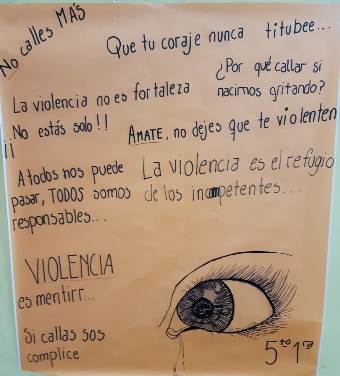 No calles MÁS
Que tu coraje nunca titubee...
¿Por qué callar si
nacimos gritando?
La violencia no es fortaleza
¡¡No estás solo!!
ÁMATE, no dejes que te violenten
A todos nos puede
pasar, TODOS somos
responsables...
La violencia es el refugio
de los incompetentes...
VIOLENCIA
es mentirr...
Si callas sos
complice
5to 1ra